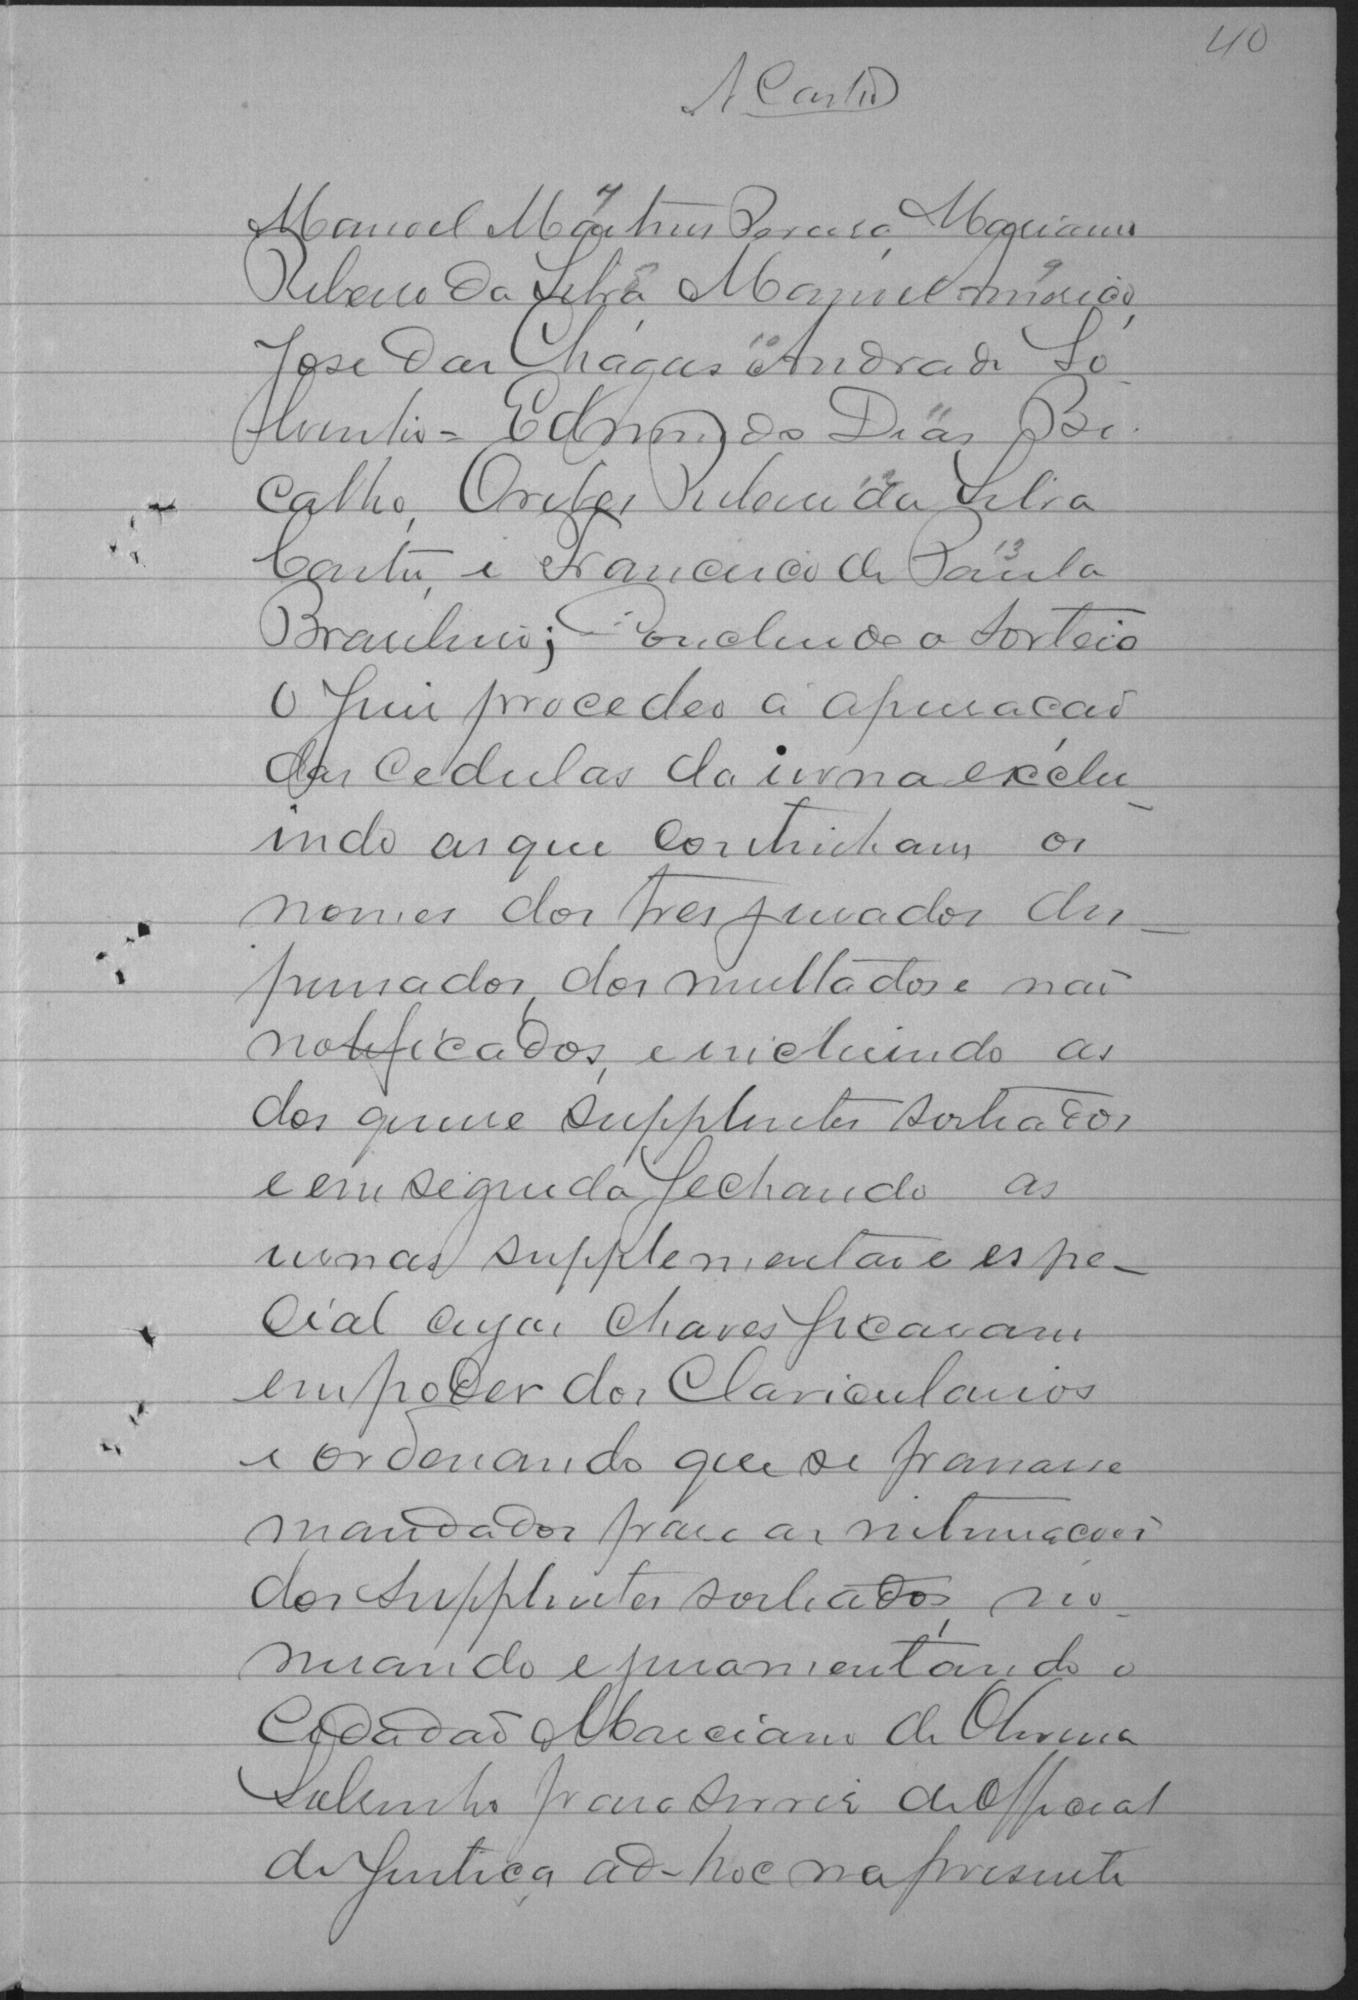 40
A Castro
Manoel Martins Pereira, Mariano 7
Ribeiro da Silva, 8 Manoel Americo, 9
Jose das Chagas 10 Andrade Só
Edmundo Dias 11 Bi-
calho, Orestes Ribeiro da 12 Silva
Castro, e Francisco de Paula 13
Braulino; Concluido o sorteio
o Juiz procedeo a apuracaõ
das cedulas da urna exclu-
indo as que continham os
nomes dos tres jurados dis-
pensados, dos multados e naõ
notificados, e incluindo as
dos quinze supplentes sorteados
e em seguida fechando as
urnas supplementar e espe-
cial cujas chaves ficavam
em poder dos Clavicularios
e ordenando que se passasse
mandados para as intimacoes
dos supplentes sorteados, no-
meando e juramentando o
Cidadaõ Marciano de Oliveira
Sobrinho para servir de Official
de Justiça ad-hoc na presente